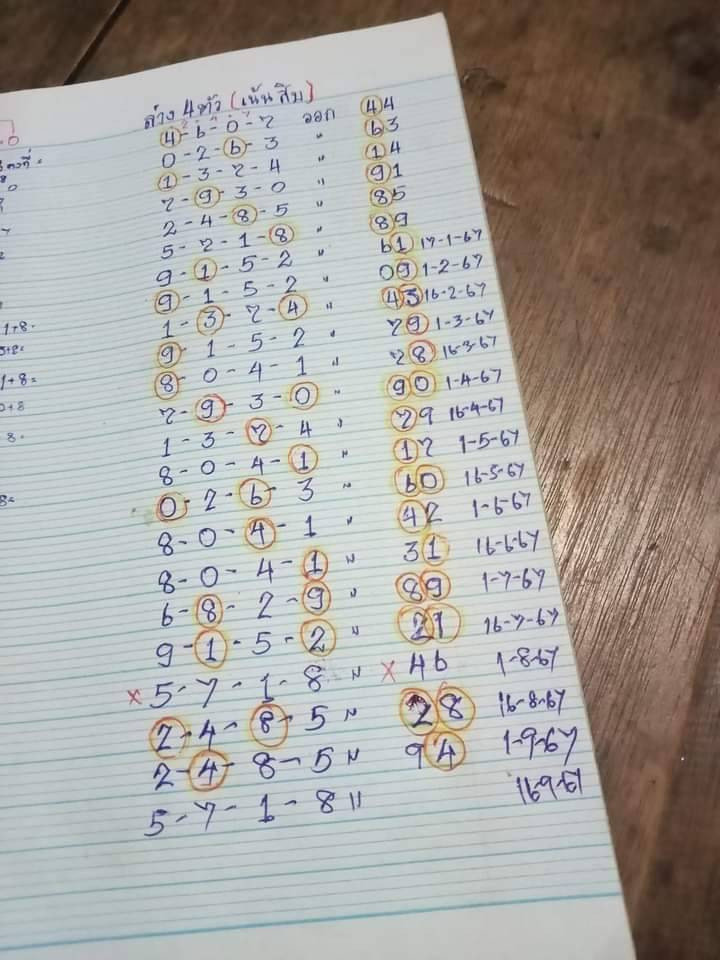 ล่าง 4 ตัว (เน้นสิบ)
4-6-0-7 ออก 44
0-2-6-3 " 63
1-3-7-4 " 14
7-9-3-0 " 91
2-4-8-5 " 85
5-7-1-8 " 89
9-1-5-2 " 61 17-1-67
9-1-5-2 " 09 1-2-67
1-3-7-4 " 43 16-2-67
9-1-5-2 " 79 1-3-67
8-0-4-1 " 78 16-3-67
7-9-3-0 " 90 1-4-67
1-3-7-4 " 79 16-4-67
8-0-4-1 " 17 1-5-67
0-2-6-3 " 60 16-5-67
8-0-4-1 " 42 1-6-67
8-0-4-1 " 31 16-6-67
6-8-2-9 " 89 1-7-67
9-1-5-2 " 21 16-7-67
× 5-7-1-8 " × 46 1-8-67
2-4-8-5 " 28 16-8-67
2-4-8-5 " 94 1-9-67
5-7-1-8 " 16-9-67
1+8=
1+8=
8=